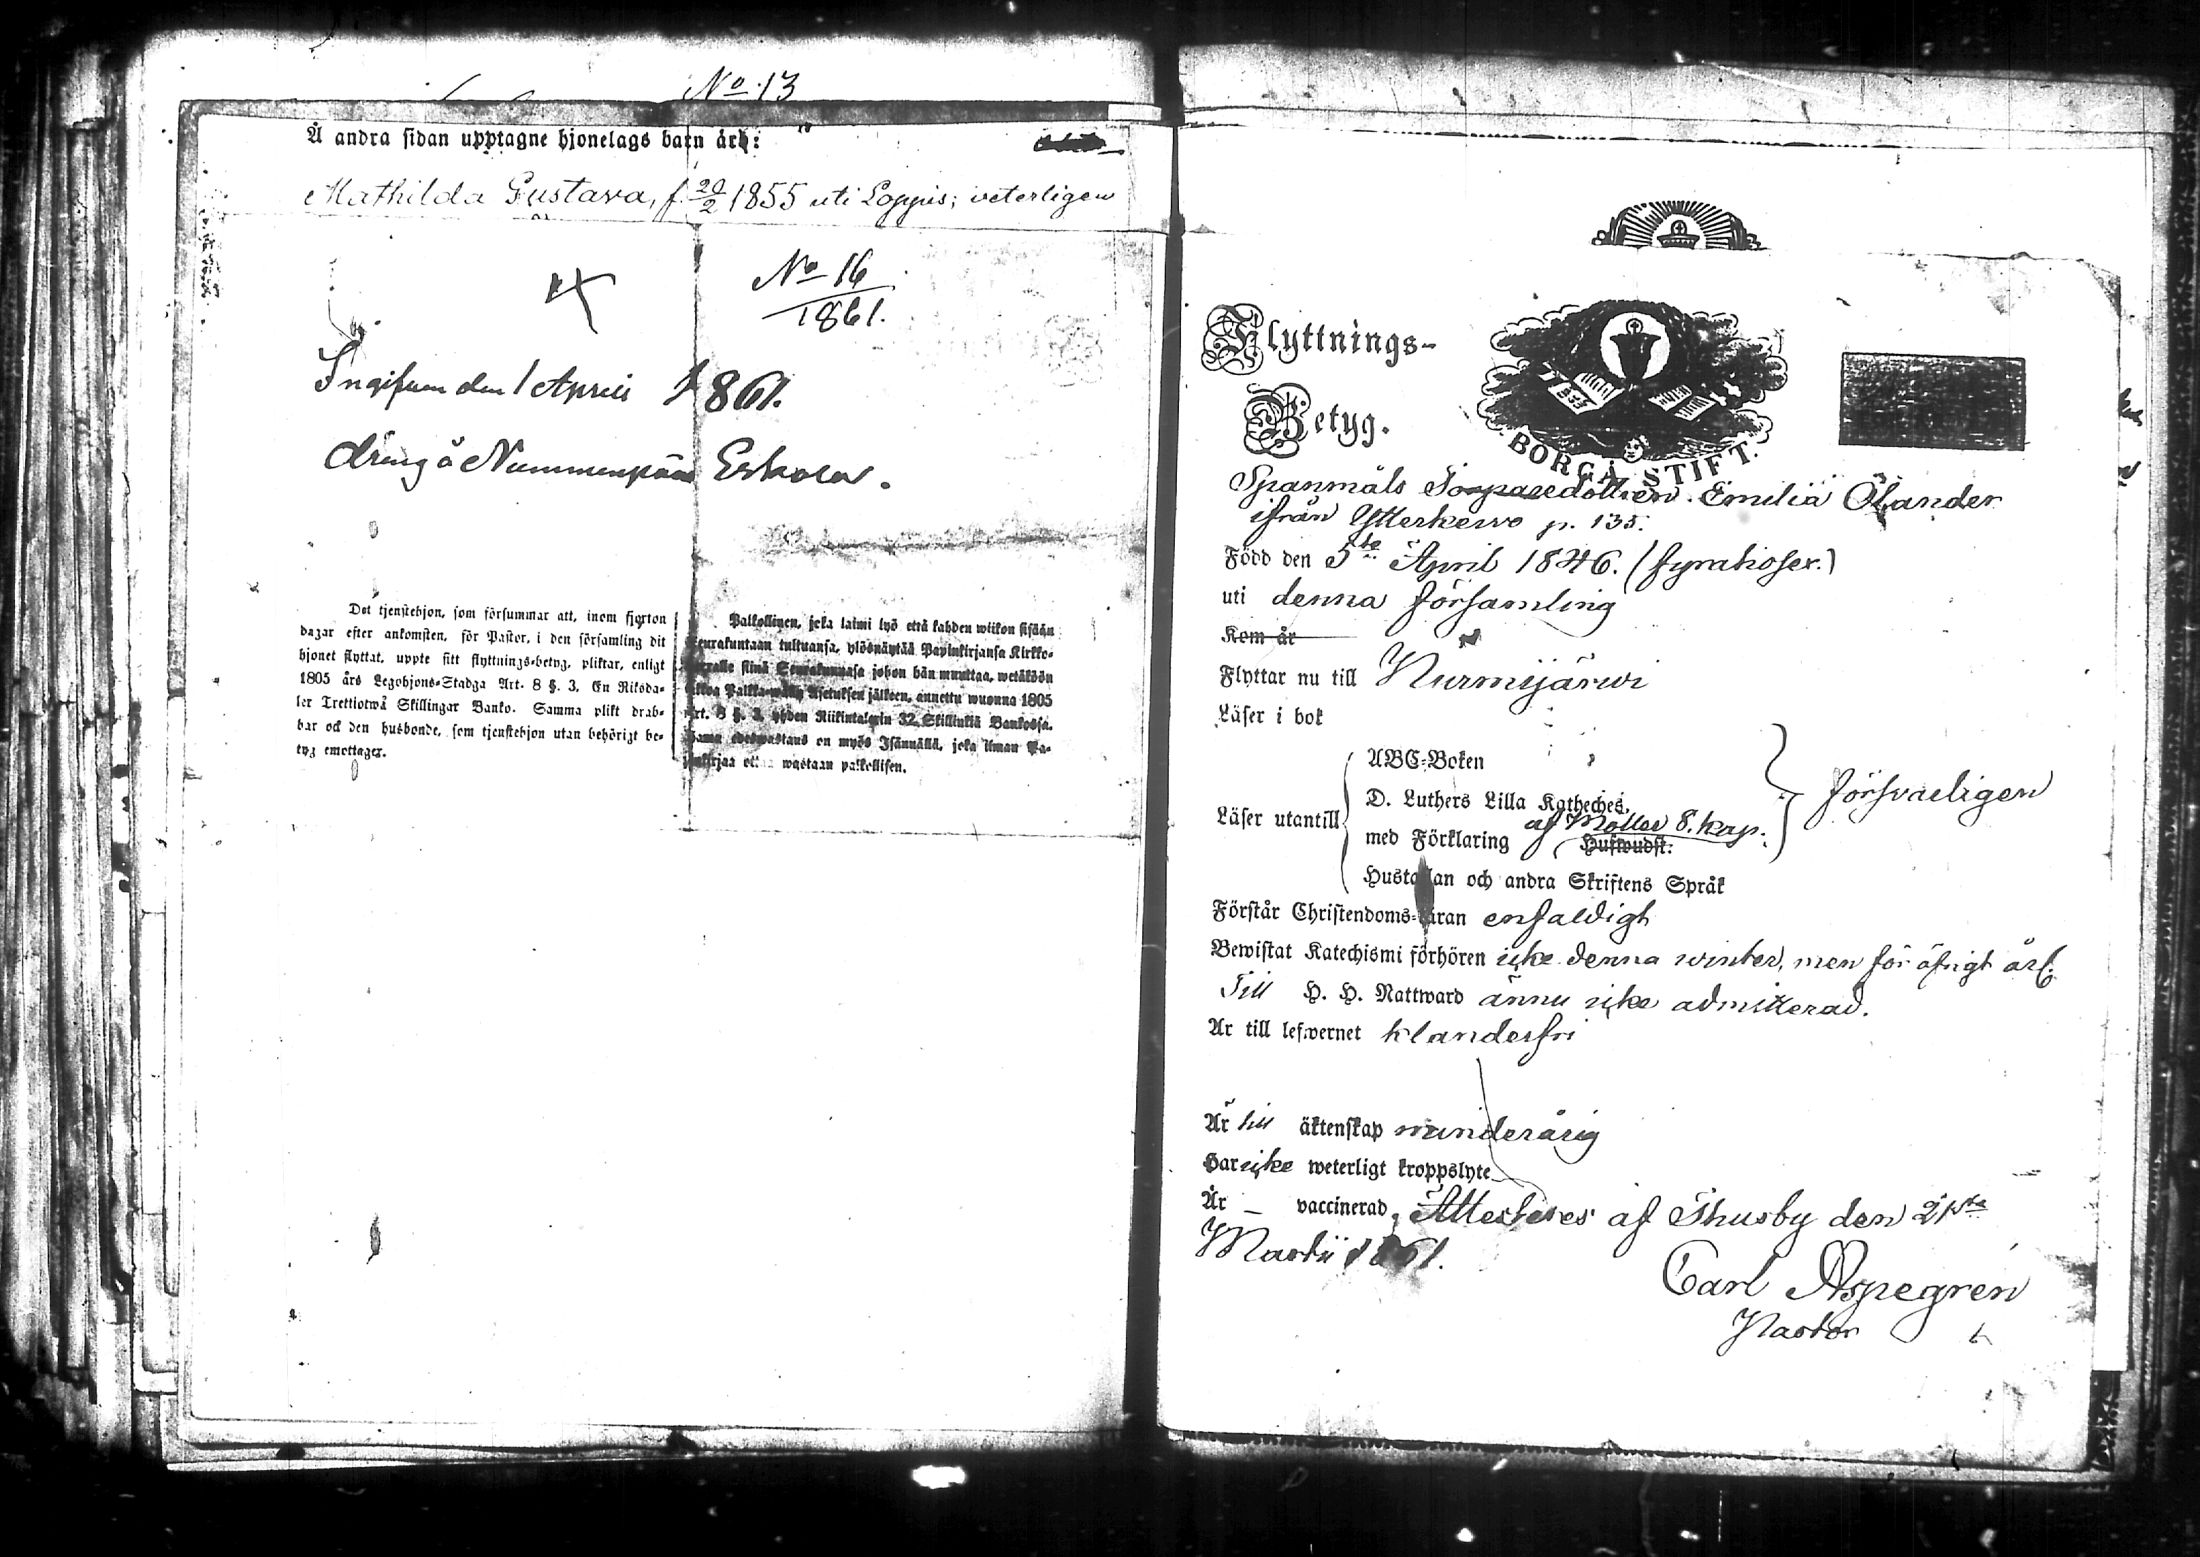 No 13
Å andra sidan upptagne hjonelags barn äro:
Mathilda Gustava, f. 20/2 1855 uti Loppis; veterligen
No 16
1861.
den 1 April 1861.
dräng å Nummenpää Eskola.
Det tjenstehjon, som försummar att, inom fjorton
dagar efter ankomsten, för Pastor, i den församling dit
hjonet flyttat, uppte sitt flyttnings-betyg, pliktar, enligt
1805 års Legohjons-Stadga Art. 8 §. 3, En Riksda-
ler Trettiotwå Skillingar Banko. Samma plikt drab-
bar ock den husbonde, som tjenstehjon utan behörigt be-
tyg emottager.
Palkollinen, joka laimi lyö että kahden wiikon sisään
Seurakuntaan tultuansa, ylösnäyttää Papinkirjansa Kirkko-
herralle siinä Seurakunnasa johon hän muuttaa, wetäköön
sakkoa Palkka-wäen Asetuksen jälkeen, annettu wuonna 1805
Art. 8 §. 3, yhden Riikintalerin 32 Skillinkiä Bankossa.
Sama edeswastaus on myös Isännällä, joka ilman Pa-
pinkirjaa ottaa wastaan palkollisen.
Flyttnings-
Betyg.
BORGÅ STIFT.
Spanmåls Torparedottren Emilia Ölander
ifrån Ytterkervo p. 135.
Född den 5te April 1846. (fyratiosex.)
uti denna församling
Kom år
Flyttar nu till Nurmijärvi
Läser i bok
Läser utantill
ABC-Boken
D. Luthers Lilla Katheches,
med Förklaring af Möller 8. kap.
Hufwudst.
Hustaflan och andra Skriftens Språk
försvarligen
Förstår Christendoms-läran enfaldigt
Bewistat Katechismi förhören icke denna winter, men för öfrigt årl.
Till H. H. Nattward ännu icke admitterad.
Är till lefwernet klanderfri
Är till äktenskap minderårig
Har icke weterligt kroppslyte
Är – vaccinerad, Attesteres af Thusby den 21sta
Martii 1861.
Carl Aspegren
Pastor